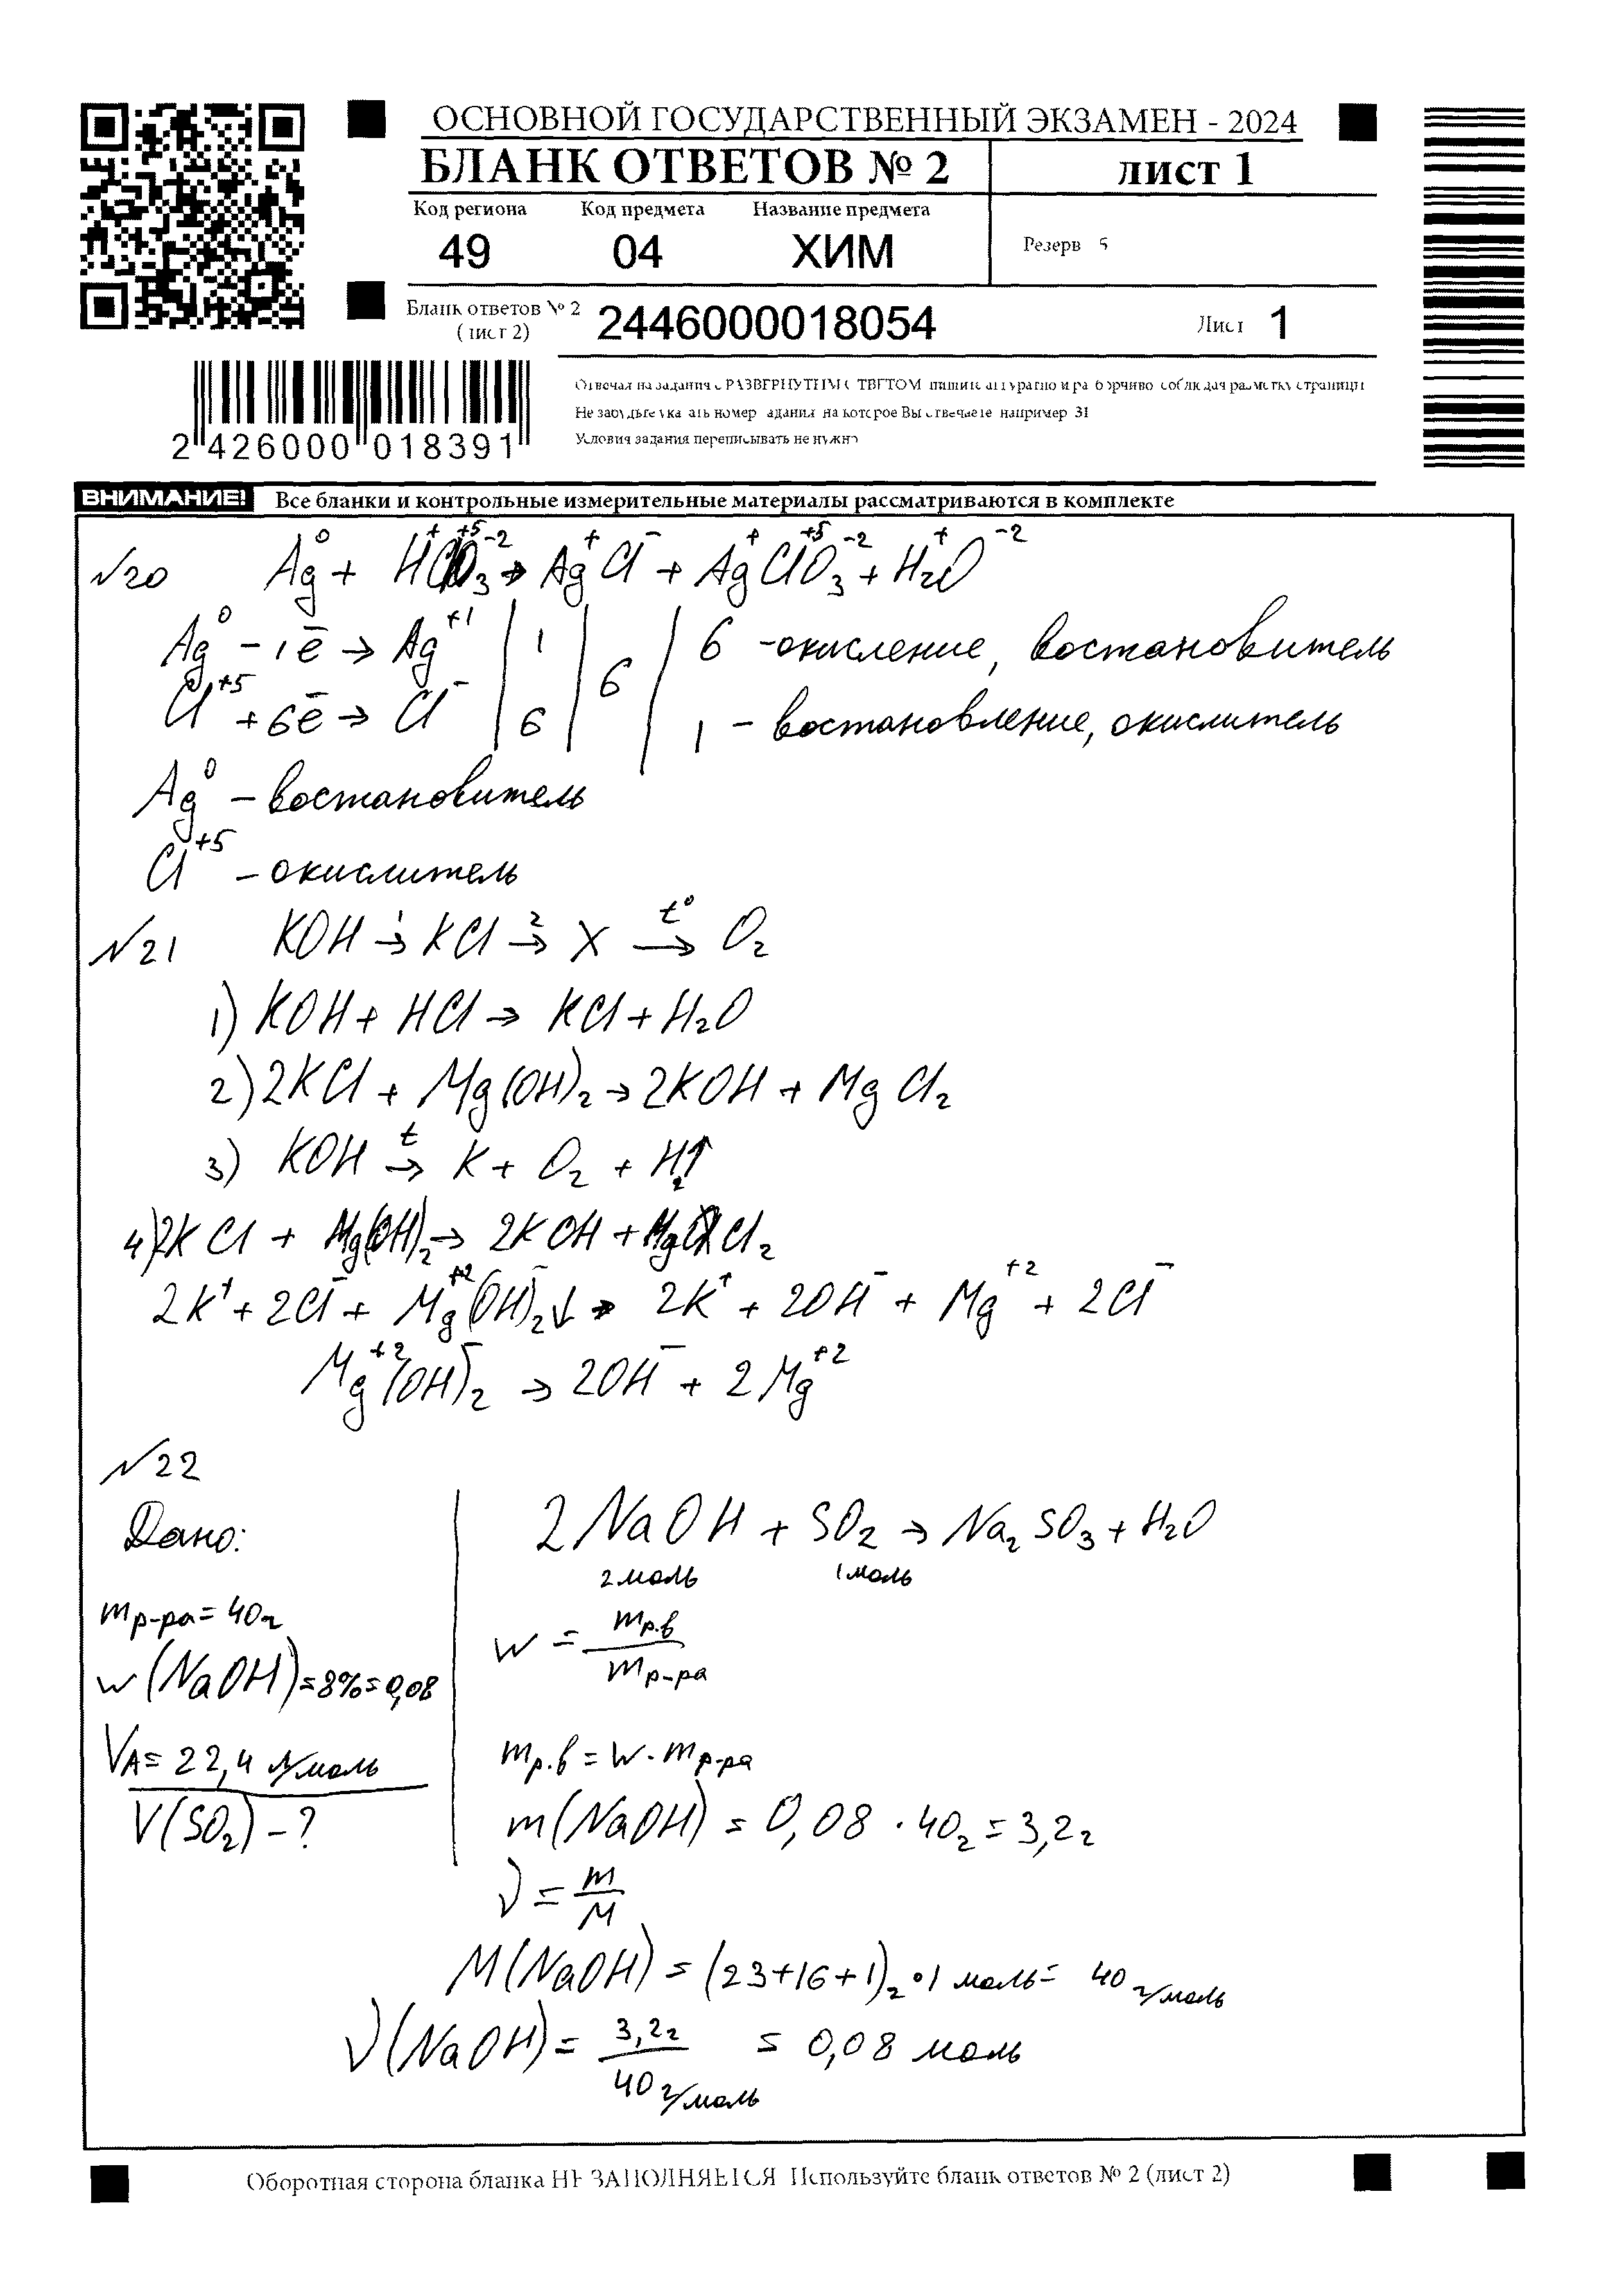 ОСНОВНОЙ ГОСУДАРСТВЕННЫЙ ЭКЗАМЕН - 2024
БЛАНК ОТВЕТОВ № 2 лист 1
Код региона Код предмета Название предмета
49 04 ХИМ
Резерв 5
Бланк ответов № 2 (лист 2) 2446000018054 Лист 1
Отвечая на задания с РАЗВЕРНУТЫМ ОТВЕТОМ пишите аккуратно и разборчиво соблюдая разметку страницы
Не забудьте указать номер задания на которое Вы отвечаете например 31
Условия задания переписывать не нужно
2 426000 018391
ВНИМАНИЕ! Все бланки и контрольные измерительные материалы рассматриваются в комплекте
№20 Ag⁰ + H⁺Cl⁺⁵O₃⁻² → Ag⁺Cl⁻ + Ag⁺Cl⁺⁵O₃⁻² + H₂⁺O⁻²
Ag⁰ - 1ē → Ag⁺¹ | 1 | 6 | 6 -окисление, востановитель
Cl⁺⁵ + 6ē → Cl⁻ | 6 | | 1 - востановление, окислитель
Ag⁰ - востановитель
Cl⁺⁵ - окислитель
№21 KOH →¹ KCl →² X →t° O₂
1) KOH + HCl → KCl + H₂O
2) 2KCl + Mg(OH)₂ → 2KOH + MgCl₂
3) KOH →t K + O₂ + H₂↑
4) 2KCl + Mg(OH)₂ → 2KOH + MgCl₂
2K⁺ + 2Cl⁻ + Mg⁺²(OH)⁻₂↓ → 2K⁺ + 2OH⁻ + Mg⁺² + 2Cl⁻
Mg⁺²(OH)⁻₂ → 2OH⁻ + 2Mg⁺²
№22
Дано:
mр-ра = 40г
w(NaOH) = 8% = 0,08
VА = 22,4 л/моль
V(SO₂) - ?
2NaOH + SO₂ → Na₂SO₃ + H₂O
2 моль 1 моль
w = mр.в / mр-ра
mр.в = w · mр-ра
m(NaOH) = 0,08 · 40г = 3,2г
ν = m / M
M(NaOH) = (23+16+1)г · 1 моль = 40 г/моль
ν(NaOH) = 3,2г / 40 г/моль = 0,08 моль
Оборотная сторона бланка НЕ ЗАПОЛНЯЕТСЯ Используйте бланк ответов № 2 (лист 2)